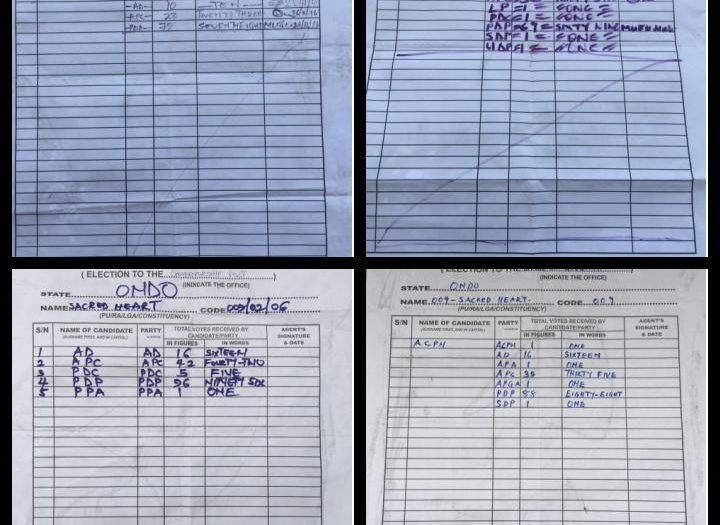 -AD- 10 -TEN-
-APC- 23 TWENTY THREE
-PDP- 78 SEVENTY EIGHT
LP = 1 = = ONE =
PDC = 1 = = ONE =
PDP = 69 = SIXTY NINE
SDP = 1 = = ONE =
UDP = 1 = = ONE =
( ELECTION TO THE )
(INDICATE THE OFFICE)
STATE ONDO
NAME SACRED HEART CODE 009/02/06
(PU/RA/LGA/CONSTITUENCY)
S/N NAME OF CANDIDATE PARTY TOTAL VOTES RECEIVED BY CANDIDATE/PARTY AGENT'S SIGNATURE & DATE
(SURNAME FIRST, AND IN CAPITAL) IN FIGURES IN WORDS
1 AD AD 16 SIXTEEN
2 APC APC 42 FOURTY-TWO
3 PDC PDC 5 FIVE
4 PDP PDP 96 NINETY SIX
5 PPA PPA 1 ONE
(INDICATE THE OFFICE)
STATE ONDO
NAME 009-SACRED HEART. CODE 009
(PU/RA/LGA/CONSTITUENCY)
S/N NAME OF CANDIDATE PARTY TOTAL VOTES RECEIVED BY CANDIDATE/PARTY AGENT'S SIGNATURE & DATE
(SURNAME FIRST, AND IN CAPITAL) IN FIGURES IN WORDS
ACPN ACPN 1 ONE
AD 16 SIXTEEN
APA 1 ONE
APC 35 THIRTY FIVE
APGA 1 ONE
PDP 88 EIGHTY-EIGHT
SDP 1 ONE